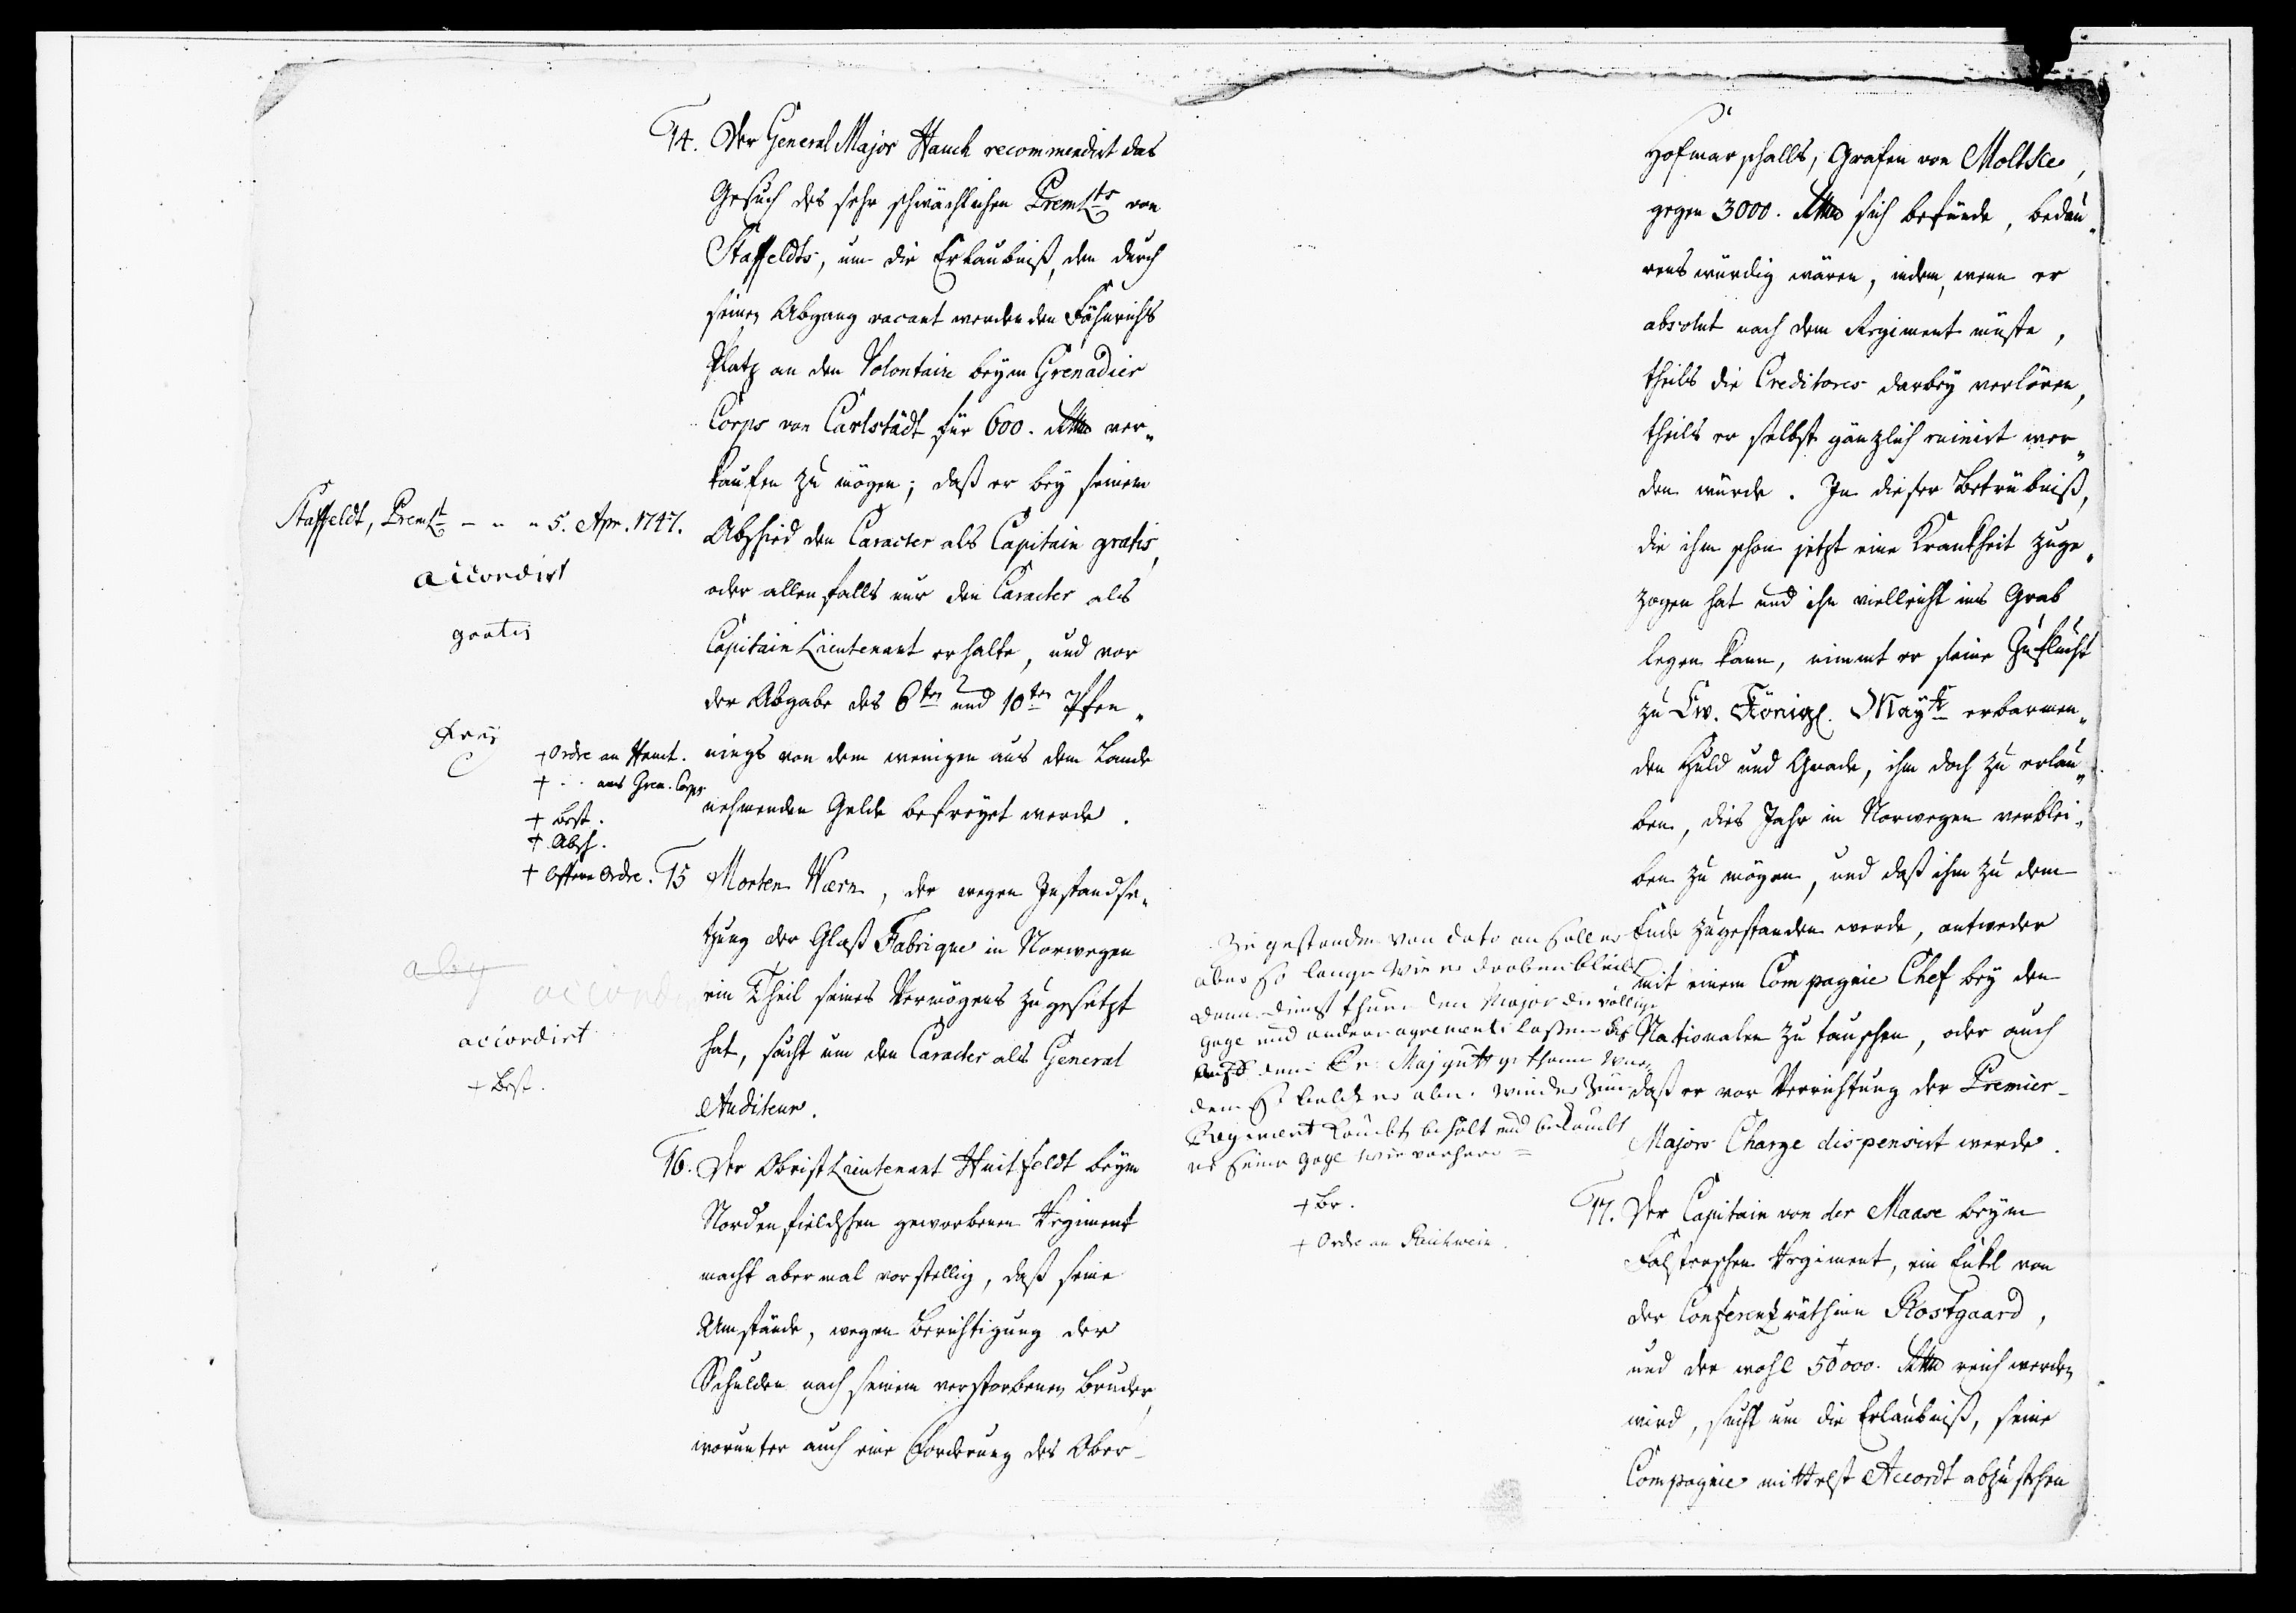 14. Der General Major Hauch recommendirt das
Gesuch des sehr schwächlichen PremLts von
Staffeldts, um die Erlaubniß, den durch
seinen Abgang vacant werdenden Fähnrichs
Platz an den Volontair beym Grenadier
Corps von Carlstädt für 600. Rthlr ver„
kaufen zu mögen; daß er bey seinem
Abschied den Caracter als Capitain gratis,
oder allenfalls nur den Caracter als
Capitain Lieutenant erhalte, und vor
der Abgabe des 6ten und 10ten Pfen„
nings von dem wenigen aus dem Lande
nehmenden Gelde befreyet werde.
Staffeldt, PremLt - " " 5. Apr. 1747.
accordirt
gratis
frey
+ Ordre an Hauch.
+ " ans Gren. Corps
+ Best.
+ Absch.
+ Offene Ordre.
15 Morten Wærn, der wegen Instandse„
tzung der Glaß Fabrique in Norwegen
ein Theil seines Vermögens zugesetzt
hat, sucht um den Caracter als General
Auditeur.
accordirt
+ Best.
16. Der Obrist Lieutenant Huitfeldt beym
Nordenfieldschen geworbenen Regiment
macht abermal vorstellig, daß seine
Umstände, wegen Berichtigung der
Schulden nach seinem verstorbenen Bruder,
worunter auch eine Forderung des Ober-
Hofmarschalls, Grafen von Moltke,
gegen 3000. Rthlr sich befünde, bedau„
renswürdig wären, indem, wenn er
absolut nach dem Regiment müste,
theils die Creditores darbey verlören,
theils er selbst gänzlich ruinirt wer„
den würde. In dieser Betrübniß,
die ihm schon jetzt eine Krankheit zuge„
zogen hat und ihn vielleicht ins Grab
legen kann, nimmt er seine Zuflucht
zu Ew. Königl. Maytt erbarmen„
den Huld und Gnade, ihm doch zu erlau„
ben, dies Jahr in Norwegen verblei„
ben zu mögen, und daß ihm zu dem
Ende zugestanden werde, entweder
mit einem Compagnie Chef bey den
Nationalen zu tauschen, oder auch
daß er vor Verrichtung der Premier-
Majors Charge dispensirt werde.
Zu gestanden von dato an soll er
aber so lange wie er droben bleibt
dem dienst thuen den Major die völlige
gage und andere agrements lassen
dem Major
so baldt er aber wieder zum
Regiment komt, behält und bekomt
er seine gage wie vorher =
+ Br.
+ Ordre an Reichwein.
17. Der Capitain von der Maase beym
Falsterschen Regiment, ein Enkel von
der Conferentzräthinn Rostgaard,
und der wohl 50000. Rthlr reich werden
wird, sucht um die Erlaubniß, seine
Compagnie mittelst Accordt abzustehen